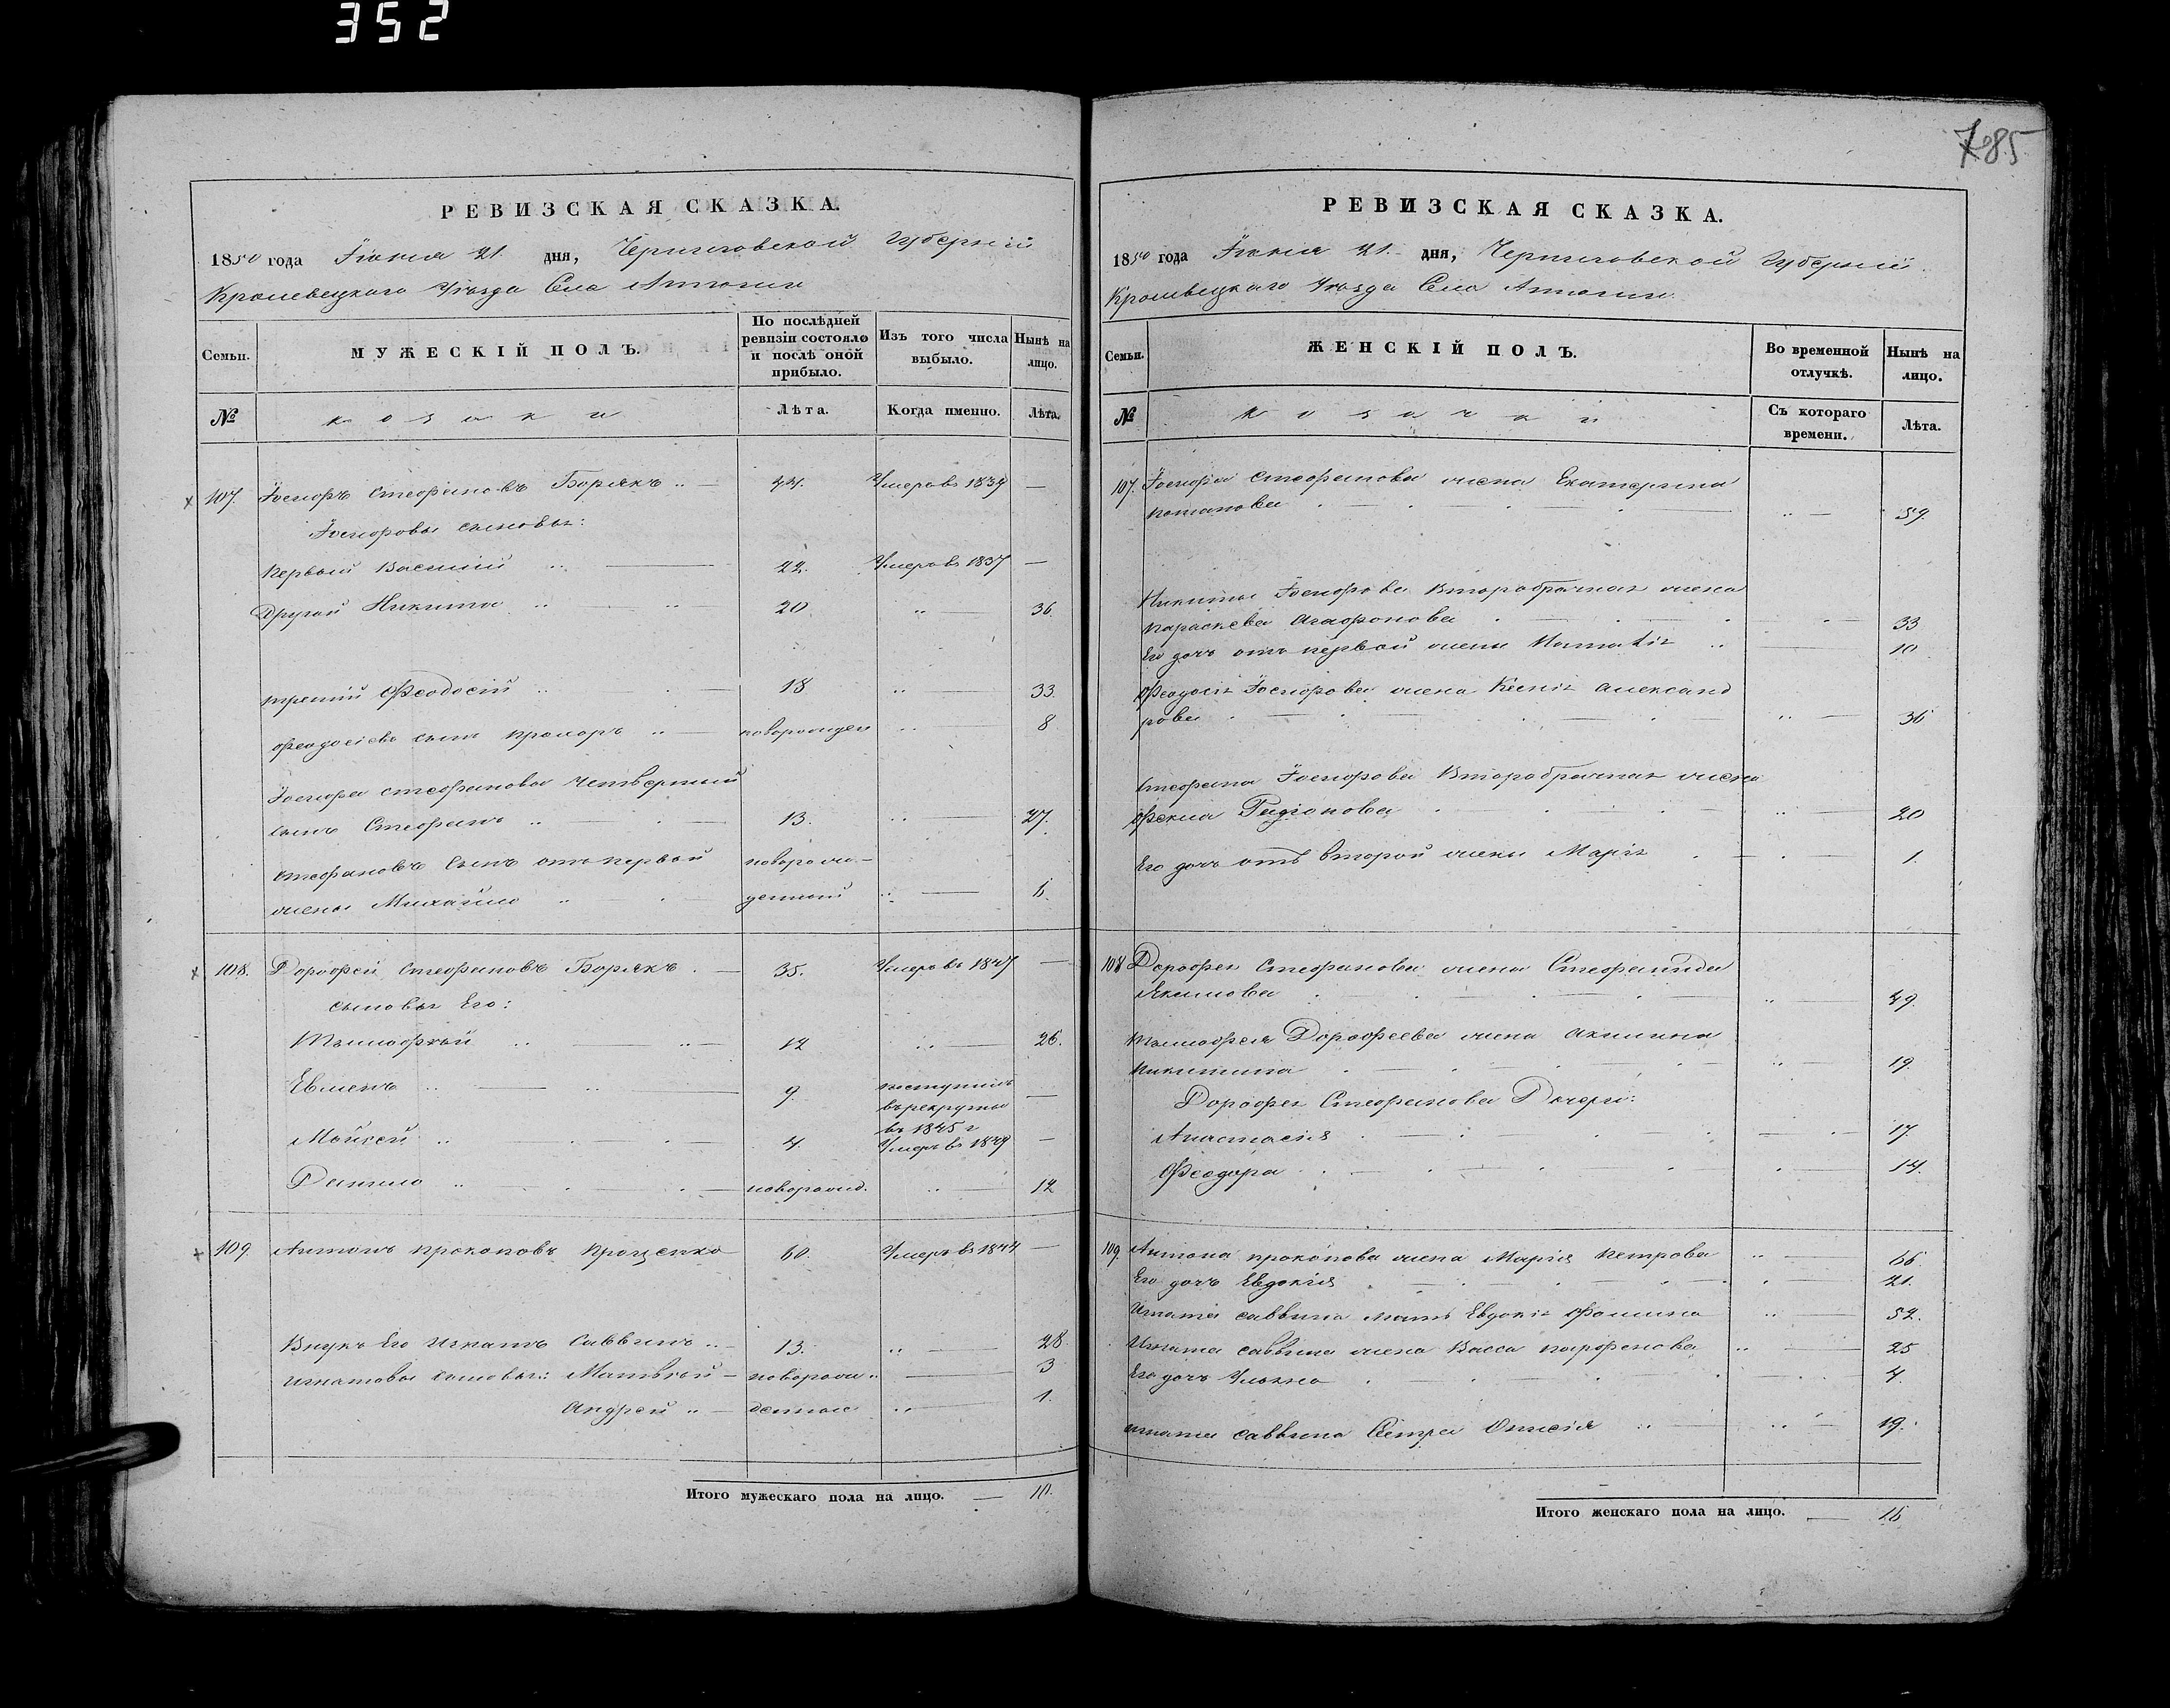 352
РЕВИЗСКАЯ СКАЗКА.
1850 года Іюня 21. дня, Черниговской Губерніи
Кролевецкаго Уѣзда Села
Семьи.
МУЖЕСКІЙ ПОЛЪ.
По послѣдней ревизіи состояло и послѣ оной прибыло.
Изъ того числа выбыло.
Нынѣ на лицо.
№
козаки
Лѣта.
Когда именно.
Лѣта.
107. Іосифъ Стефановъ Борякъ 44. Умеръ въ 1839 —
Іосифовы сыновья:
Первый Василій 22. Умеръ въ 1837 —
Другой Никита 20 36.
третій Ѳеодосій 18 33.
Ѳеодосіевъ сынъ Прохоръ новорожден 8
Іосифа Стефанова четвертый
сынъ Стефанъ 13. 27.
Стефановъ Сынъ отъ первой новорож-
жены Михайло денный 6.
108. Дорофей Стефановъ Борякъ 35. Умеръ въ 1847 —
сыновья Его:
Тимофѣй 12 26.
Евменъ 9. поступилъ
въ рекруты
въ 1845 г
Мойсей 4. Умеръ въ 1849 —
Данило новорожд. 12
109. Антонъ Прокоповъ Проценко 60. Умеръ въ 1844 —
Внукъ Его Игнатъ Саввинъ 13. 28.
Игнатовы сыновья: Матвѣй новорож 3
Андрей денные 1.
Итого мужескаго пола на лицо. — 10.
785
РЕВИЗСКАЯ СКАЗКА.
1850 года Іюня 21. дня, Черниговской Губерніи.
Кролевецкаго Уѣзда Села
Семьи.
ЖЕНСКІЙ ПОЛЪ.
Во временной отлучкѣ.
Нынѣ на лицо.
№
козачки
Съ котораго времени.
Лѣта.
107. Іосифа Стефанова жена Екатерина
Потапова 59.
Никиты Іосифова Второбрачная жена
Параскева Агафонова 33
Его дочь отъ первой жены Наталія 10
Ѳеодосія Іосифова жена Ксенія Александ
рова 36
Стефана Іосифова Второбрачная жена
Ѳекла 20
Его дочь отъ второй жены Марія 1.
108 Дорофея Стефанова жена Стефанида
Якимова 49.
Тимофея Дорофеева жена Акилина
Никитина 19.
Дорофея Стефанова Дочери:
Анастасія 17.
Ѳеодора 14.
109. Антона Прокопова жена Марія Петрова 66.
Его дочь Евдокія 21.
Игната Саввина мать Евдокія Ѳомина 52.
Игната Саввина жена Васса Парфенова 25
Его дочь Ульяна 4.
Игната Саввина Сестра Онисія 19.
Итого женскаго пола на лицо. — 16